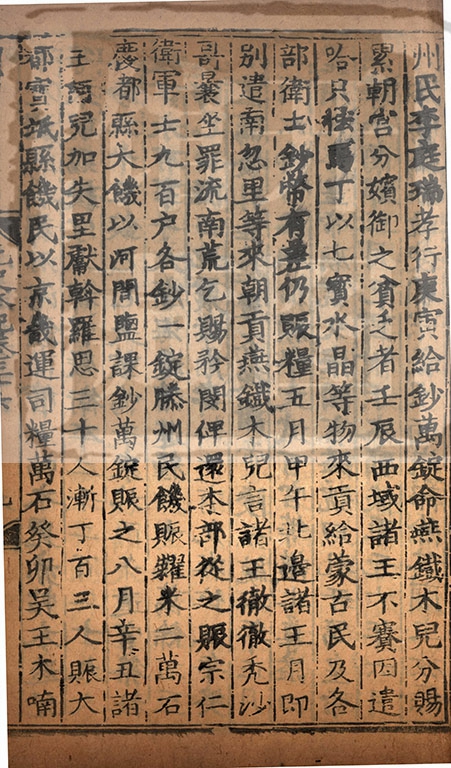 州民李庭瑞孝行庚寅給鈔萬錠命燕鐵木兒分賜
累朝宮分嬪御之貧乏者壬辰西域諸王不賽因遣
哈只怯馬丁以七寶水晶等物來貢給蒙古民及各
部衛士鈔幣有差仍賑糧五月甲午北邊諸王月即
別遣南忽里等來朝貢燕鐵木兒言諸王徹徹禿沙
哥曩坐罪流南荒乞賜矜閔俾還本部從之賑宗仁
衛軍士九百户各鈔一錠滕州民饑賑糶米二萬石
慶都縣大饑以河間鹽課鈔萬錠賑之八月辛丑諸
王阿兒加失里獻斡羅思三十人漸丁百三人賑大
都寶坻縣饑民以京畿運司糧萬石癸卯吳王木喃